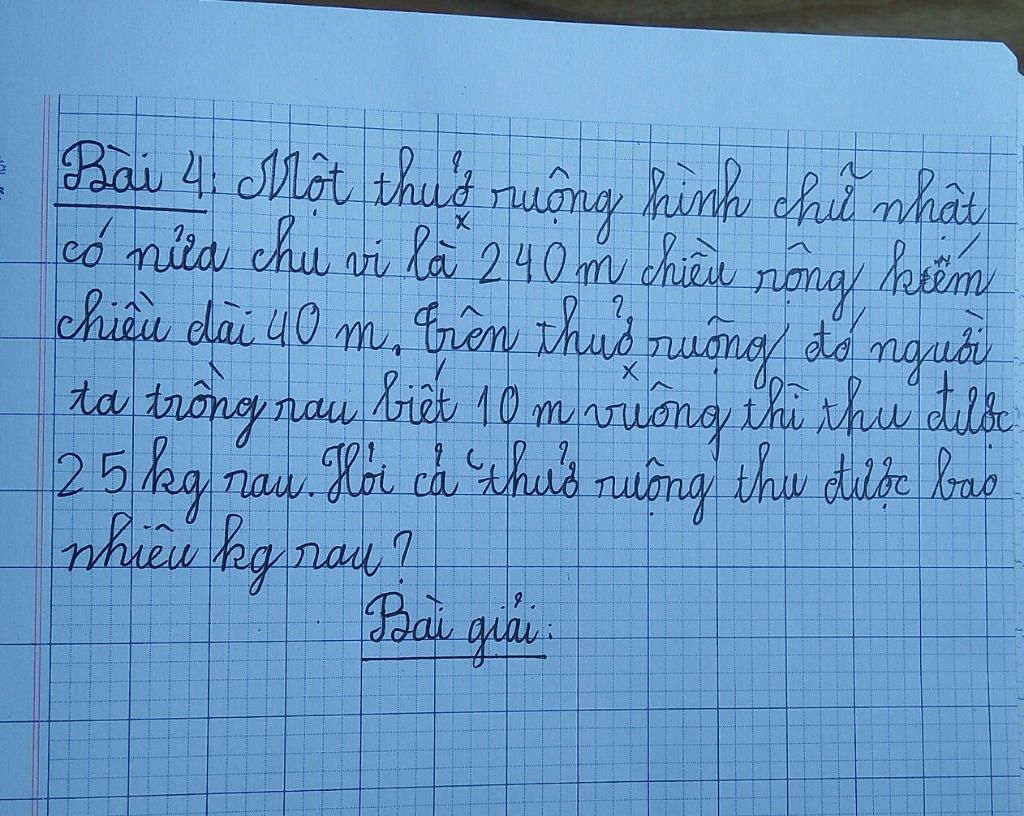 Bài 4: Một thuở ruộng hình chữ nhật
có nửa chu vi là 240 m chiều rộng kếm
chiều dài 40 m. Trên thuở ruộng đó người
ta trồng rau biết 10 m vuông thì thu được
25 kg rau. Hỏi cả thuở ruộng thu được bao
nhiêu kg rau?
Bài giải: